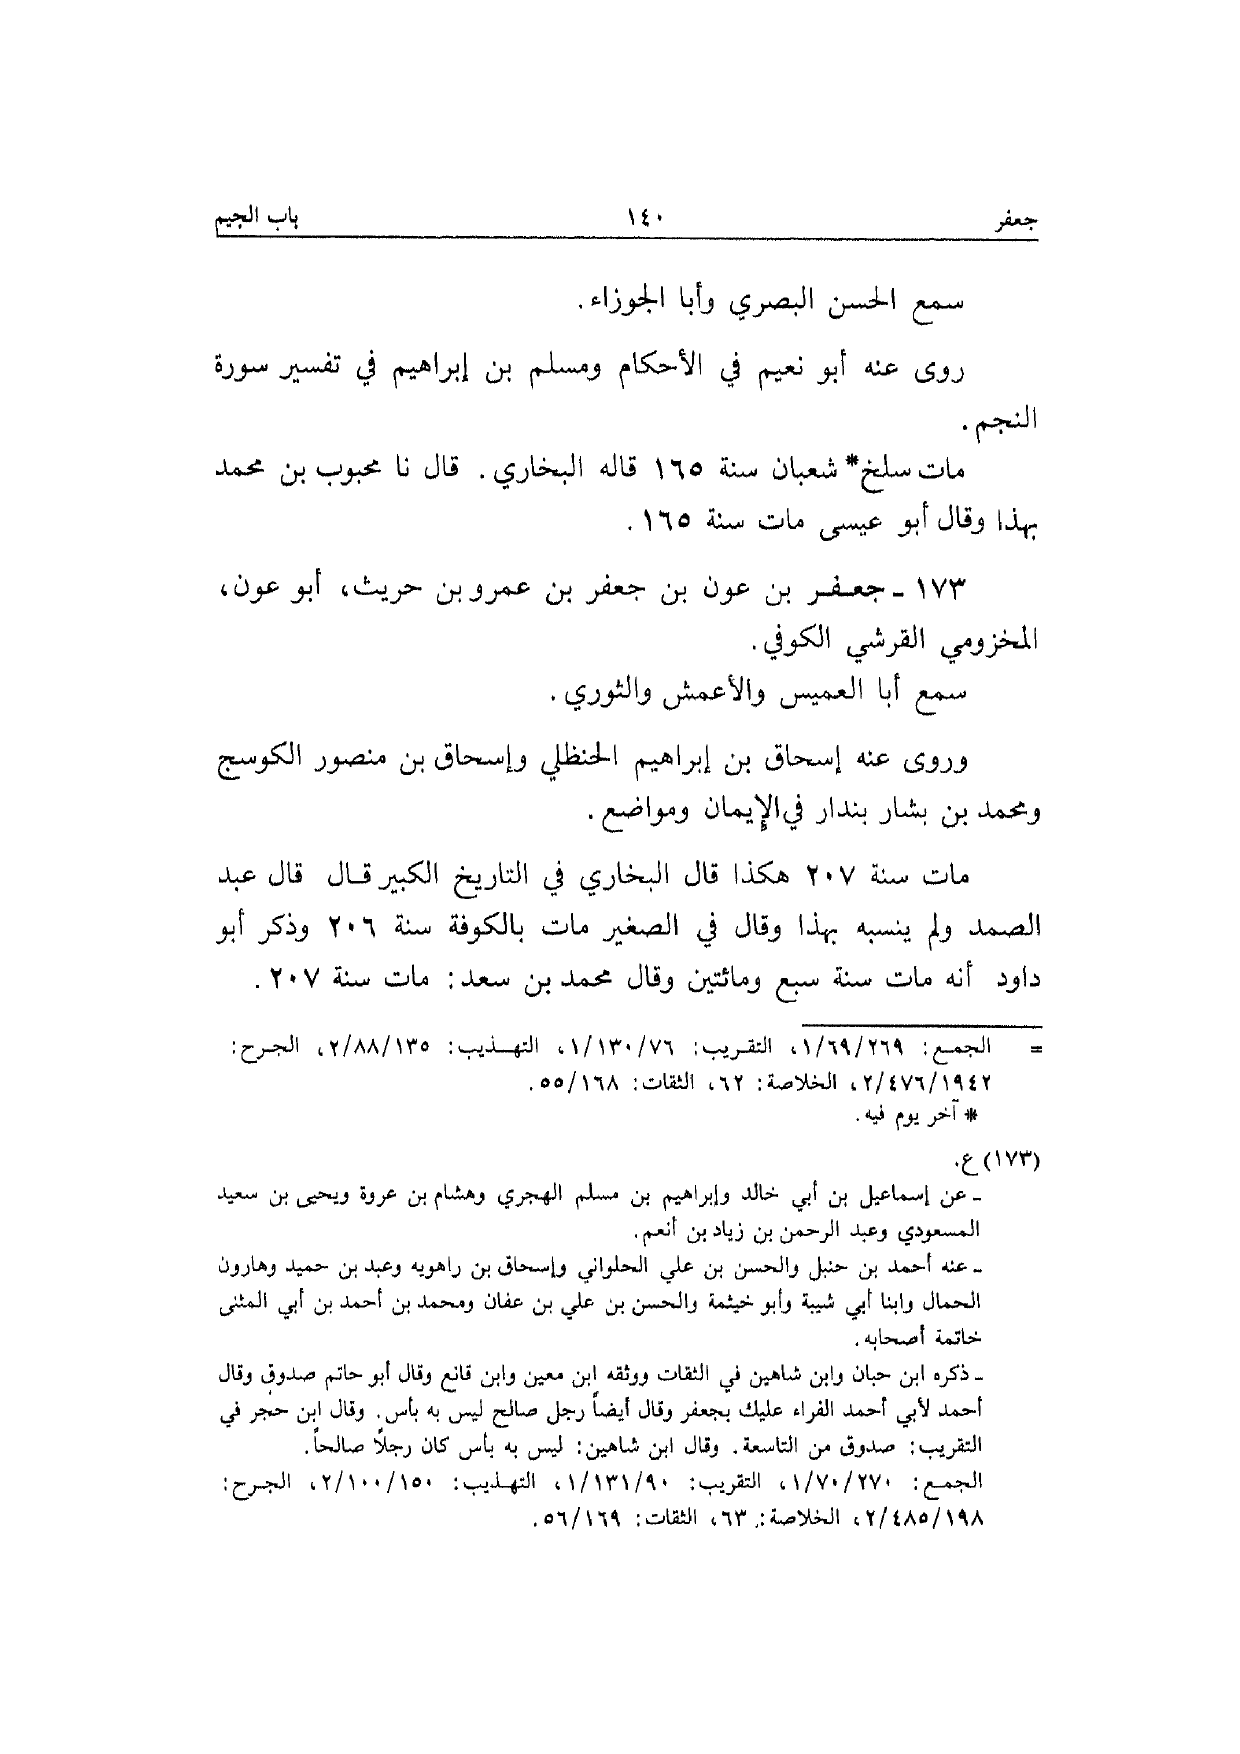 جعفر ١٤٠ باب الجيم
سمع الحسن البصري وأبا الجوزاء.
روى عنه أبو نعيم في الأحكام ومسلم بن إبراهيم في تفسير سورة
النجم.
مات سلخ* شعبان سنة ١٦٥ قاله البخاري. قال نا محبوب بن محمد
بهذا وقال أبو عيسى مات سنة ١٦٥.
١٧٣ ـ جعفر بن عون بن جعفر بن عمرو بن حريث، أبو عون،
المخزومي القرشي الكوفي.
سمع أبا العميس والأعمش والثوري.
وروى عنه إسحاق بن إبراهيم الحنظلي وإسحاق بن منصور الكوسج
ومحمد بن بشار بندار في الإيمان ومواضع.
مات سنة ٢٠٧ هكذا قال البخاري في التاريخ الكبير قال قال عبد
الصمد ولم ينسبه بهذا وقال في الصغير مات بالكوفة سنة ٢٠٦ وذكر أبو
داود أنه مات سنة سبع ومائتين وقال محمد بن سعد: مات سنة ٢٠٧.
= الجمع: ١/٦٩/٢٦٩، التقريب: ١/١٣٠/٧٦، التهذيب: ٢/٨٨/١٣٥، الجرح:
٢/٤٧٦/١٩٤٢، الخلاصة: ٦٢، الثقات: ٥٥/١٦٨.
* آخر يوم فيه.
(١٧٣) ع.
ـ عن إسماعيل بن أبي خالد وإبراهيم بن مسلم الهجري وهشام بن عروة ويحيى بن سعيد
المسعودي وعبد الرحمن بن زياد بن أنعم.
ـ عنه أحمد بن حنبل والحسن بن علي الحلواني وإسحاق بن راهويه وعبد بن حميد وهارون
الحمال وابنا أبي شيبة وأبو خيثمة والحسن بن علي بن عفان ومحمد بن أحمد بن أبي المثنى
خاتمة أصحابه.
ـ ذكره ابن حبان وابن شاهين في الثقات ووثقه ابن معين وابن قانع وقال أبو حاتم صدوق وقال
أحمد لأبي أحمد الفراء عليك بجعفر وقال أيضاً رجل صالح ليس به بأس. وقال ابن حجر في
التقريب: صدوق من التاسعة. وقال ابن شاهين: ليس به بأس كان رجلاً صالحاً.
الجمع: ١/٧٠/٢٧٠، التقريب: ١/١٣١/٩٠، التهذيب: ٢/١٠٠/١٥٠، الجرح:
٢/٤٨٥/١٩٨، الخلاصة: ٦٣، الثقات: ٥٦/١٦٩.